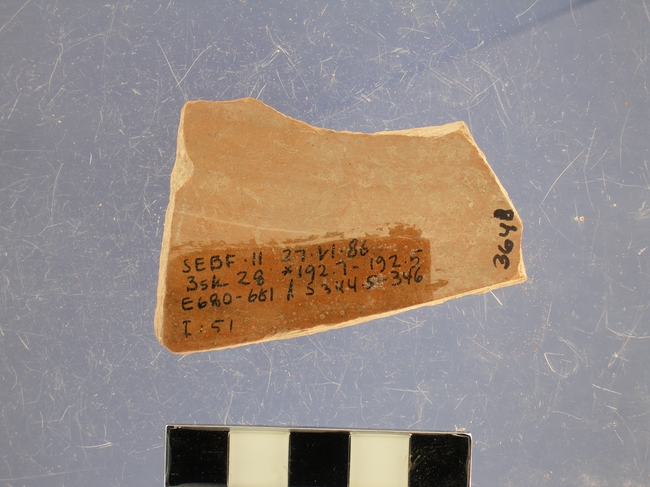 SEBF·11 27·VI·86
3sk 28 *192.7-192.5
E680-661 / S344.5-346
I:51
3648